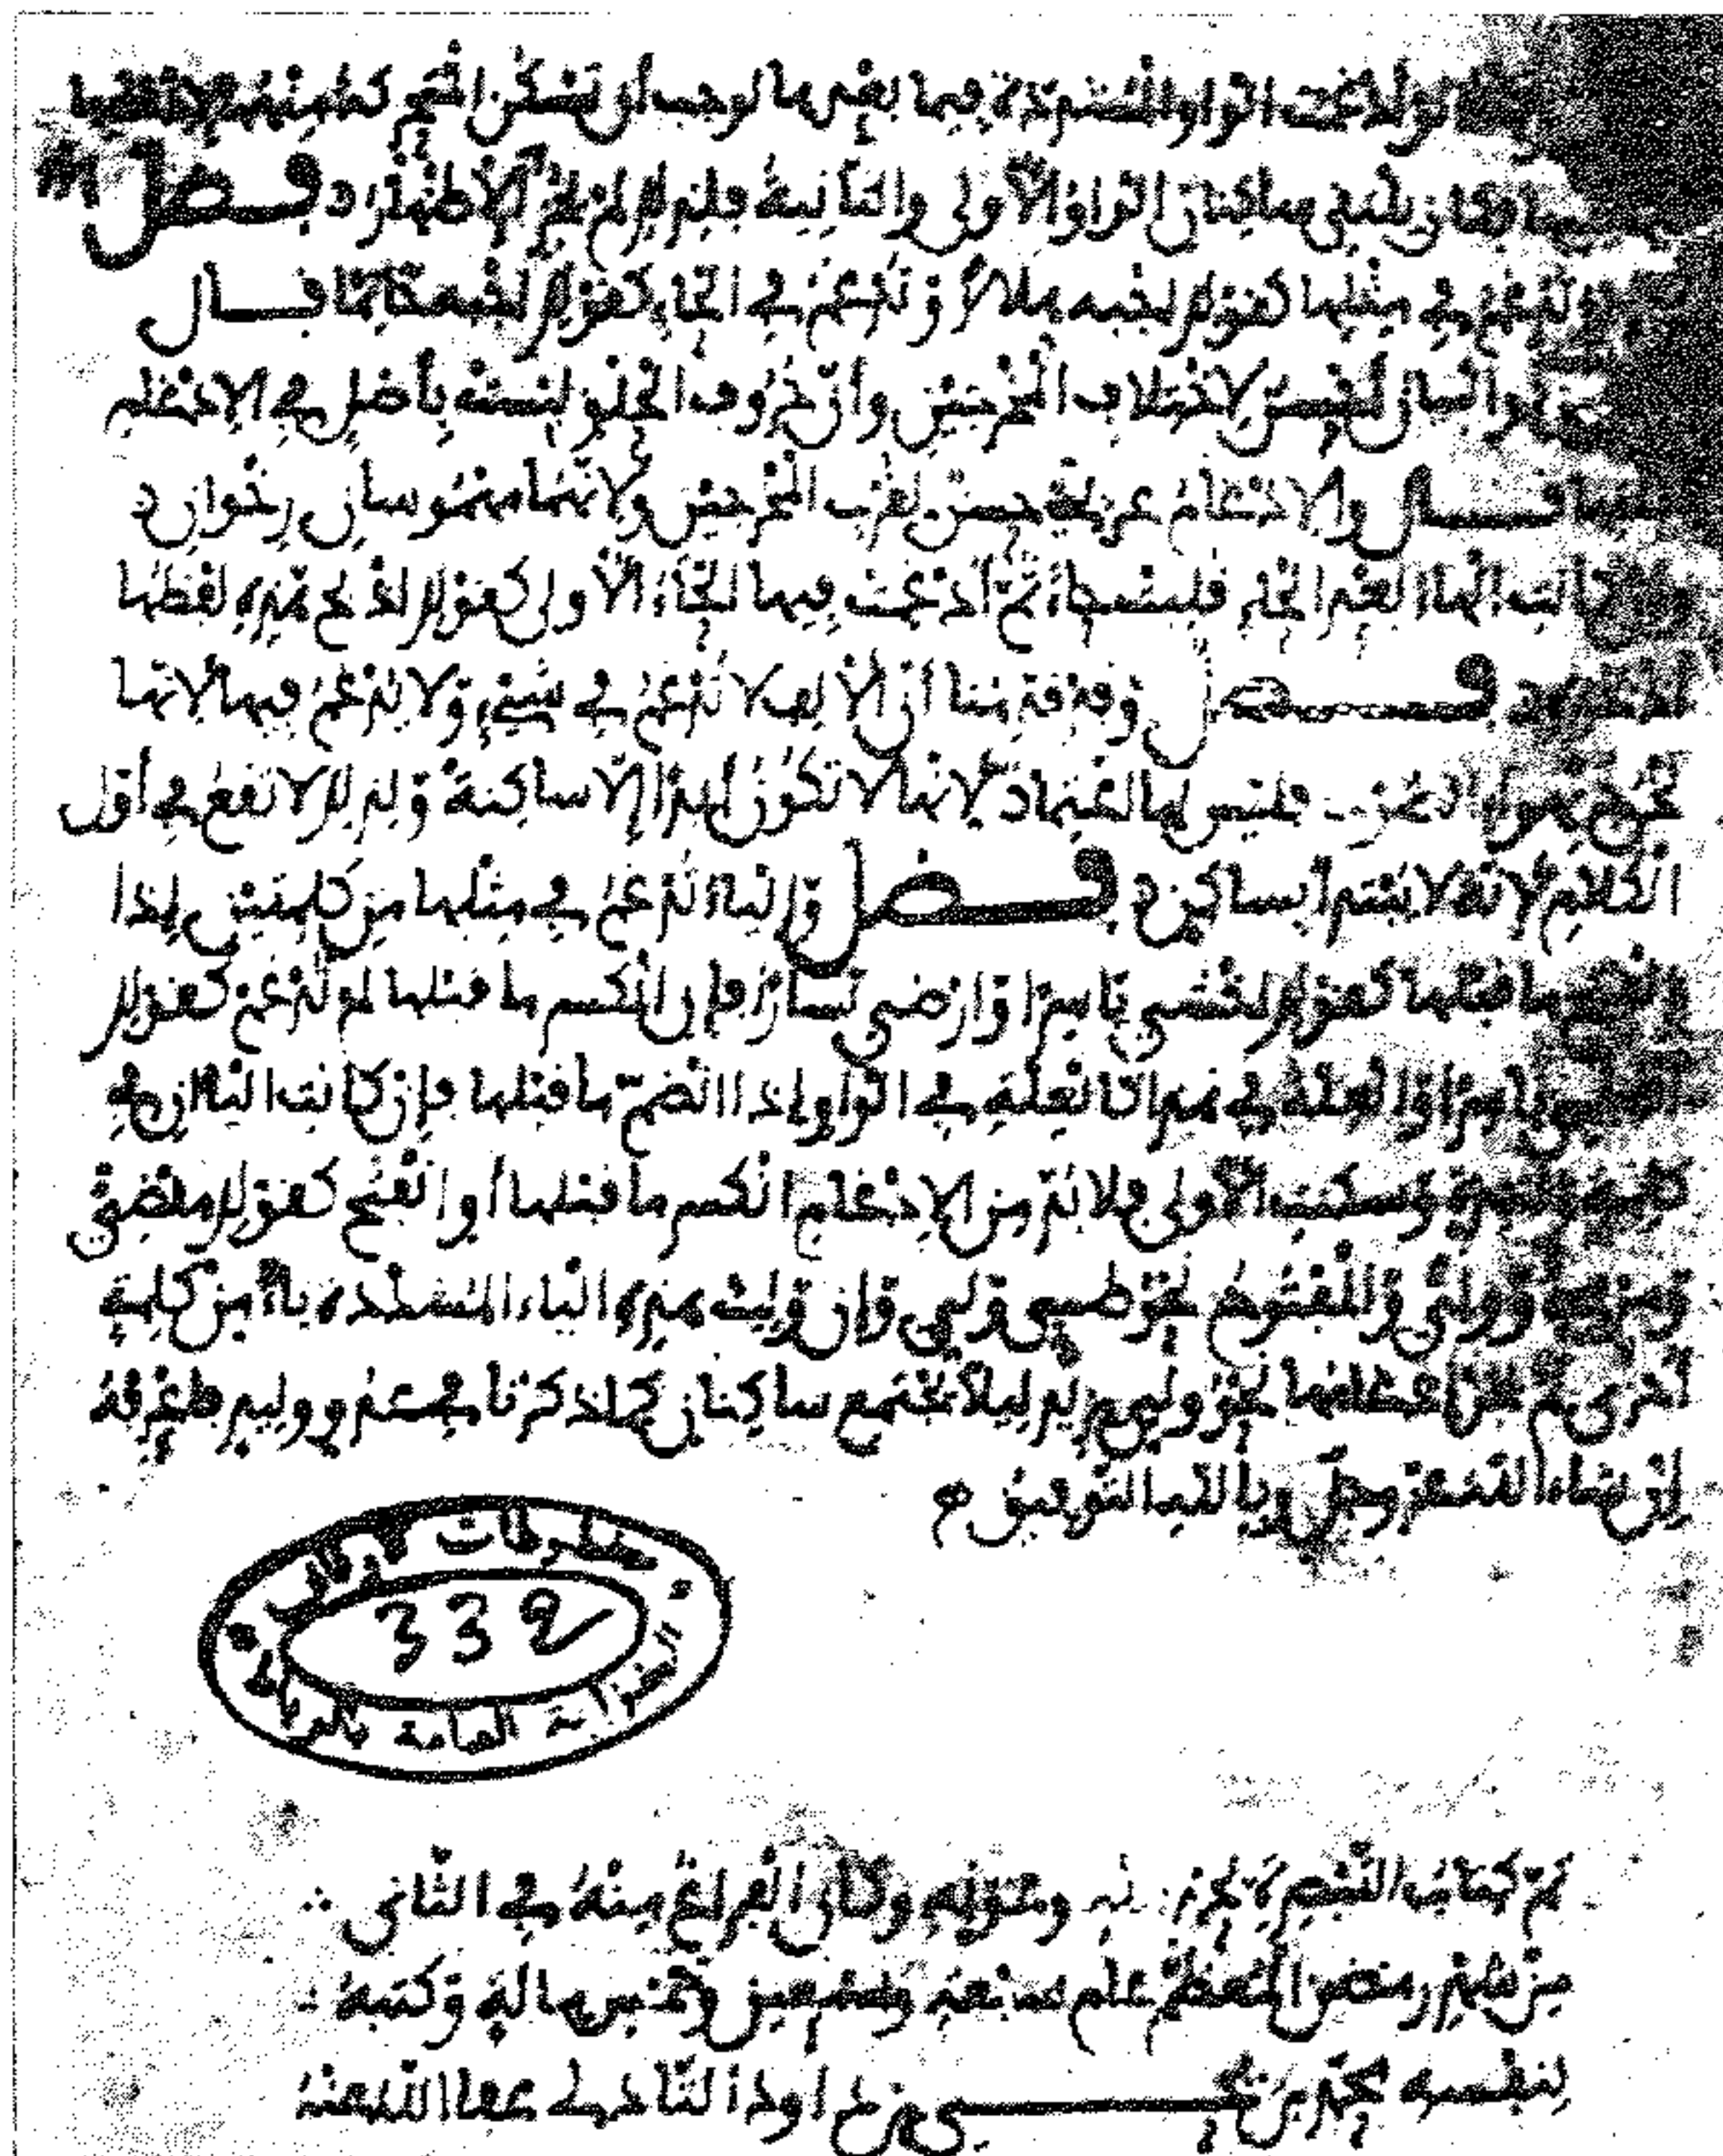 لو أدغمت الواو المشددة فيما بعدها لوجب أن تسكن المتحركة منهما لإدغامها
فيها وكان يلتقي ساكنان الواو الأولى والثانية فلذلك لم يجز إلا الإظهار فصل
وتدغم في مثلها كقولك اجبه هلالا وتدغم في الحاء كقولك اجبه حاتما قال
والبيان أحسن لاختلاف المخرجين وأن حروف الحلق ليست بأصل في الإدغام
قال والإدغام عربية حسن لقرب المخرجين ولأنهما مهموسان رخوان
الهاء بعد الحاء قلبت حاء ثم أدغمت فيها الحاء الأولى كقولك اذبح هذه لفظها
فصل وقد قدمنا أن الألف لا تدغم في شيء ولا يدغم فيها لأنها
تخرج فليس لها اعتماد لأنها لا تكون أبدا إلا ساكنة ولذلك لا تقع في أول
الكلام لأنه لا يبتدأ بساكن فصل والياء تدغم في مثلها من كلمتين إذا
انفتح ما قبلها كقولك اخشي ياسرا وارضي يسارا فإن انكسر ما قبلها لم تدغم كقولك
ياسرا والعلة في هذا كالعلة في الواو إذا انضم ما قبلها فإن كانت الياءان في
كلمة واحدة وسكنت الأولى فلا بد من الإدغام انكسر ما قبلها أو انفتح كقولك مقضي
وولي والمفتوح نحو طي ولي وإن وليت هذه الياء المشددة ياء من كلمة
أخرى لم يجز إدغامها نحو ولي يزيد ليلا يجتمع ساكنان كما ذكرنا في عدو وليد فاعرفه
إن شاء الله عز وجل وبالله التوفيق
مخطوطات أوقاف
332
الخزانة العامة بالرباط
تم كتاب التبصرة بحمد الله وعونه وكان الفراغ منه في الثاني
من شهر رمضن المعظم عام سبعة وخمس ماية وكتبه
لنفسه محمد بن يحيى بن داود التادلي عفا الله عنه